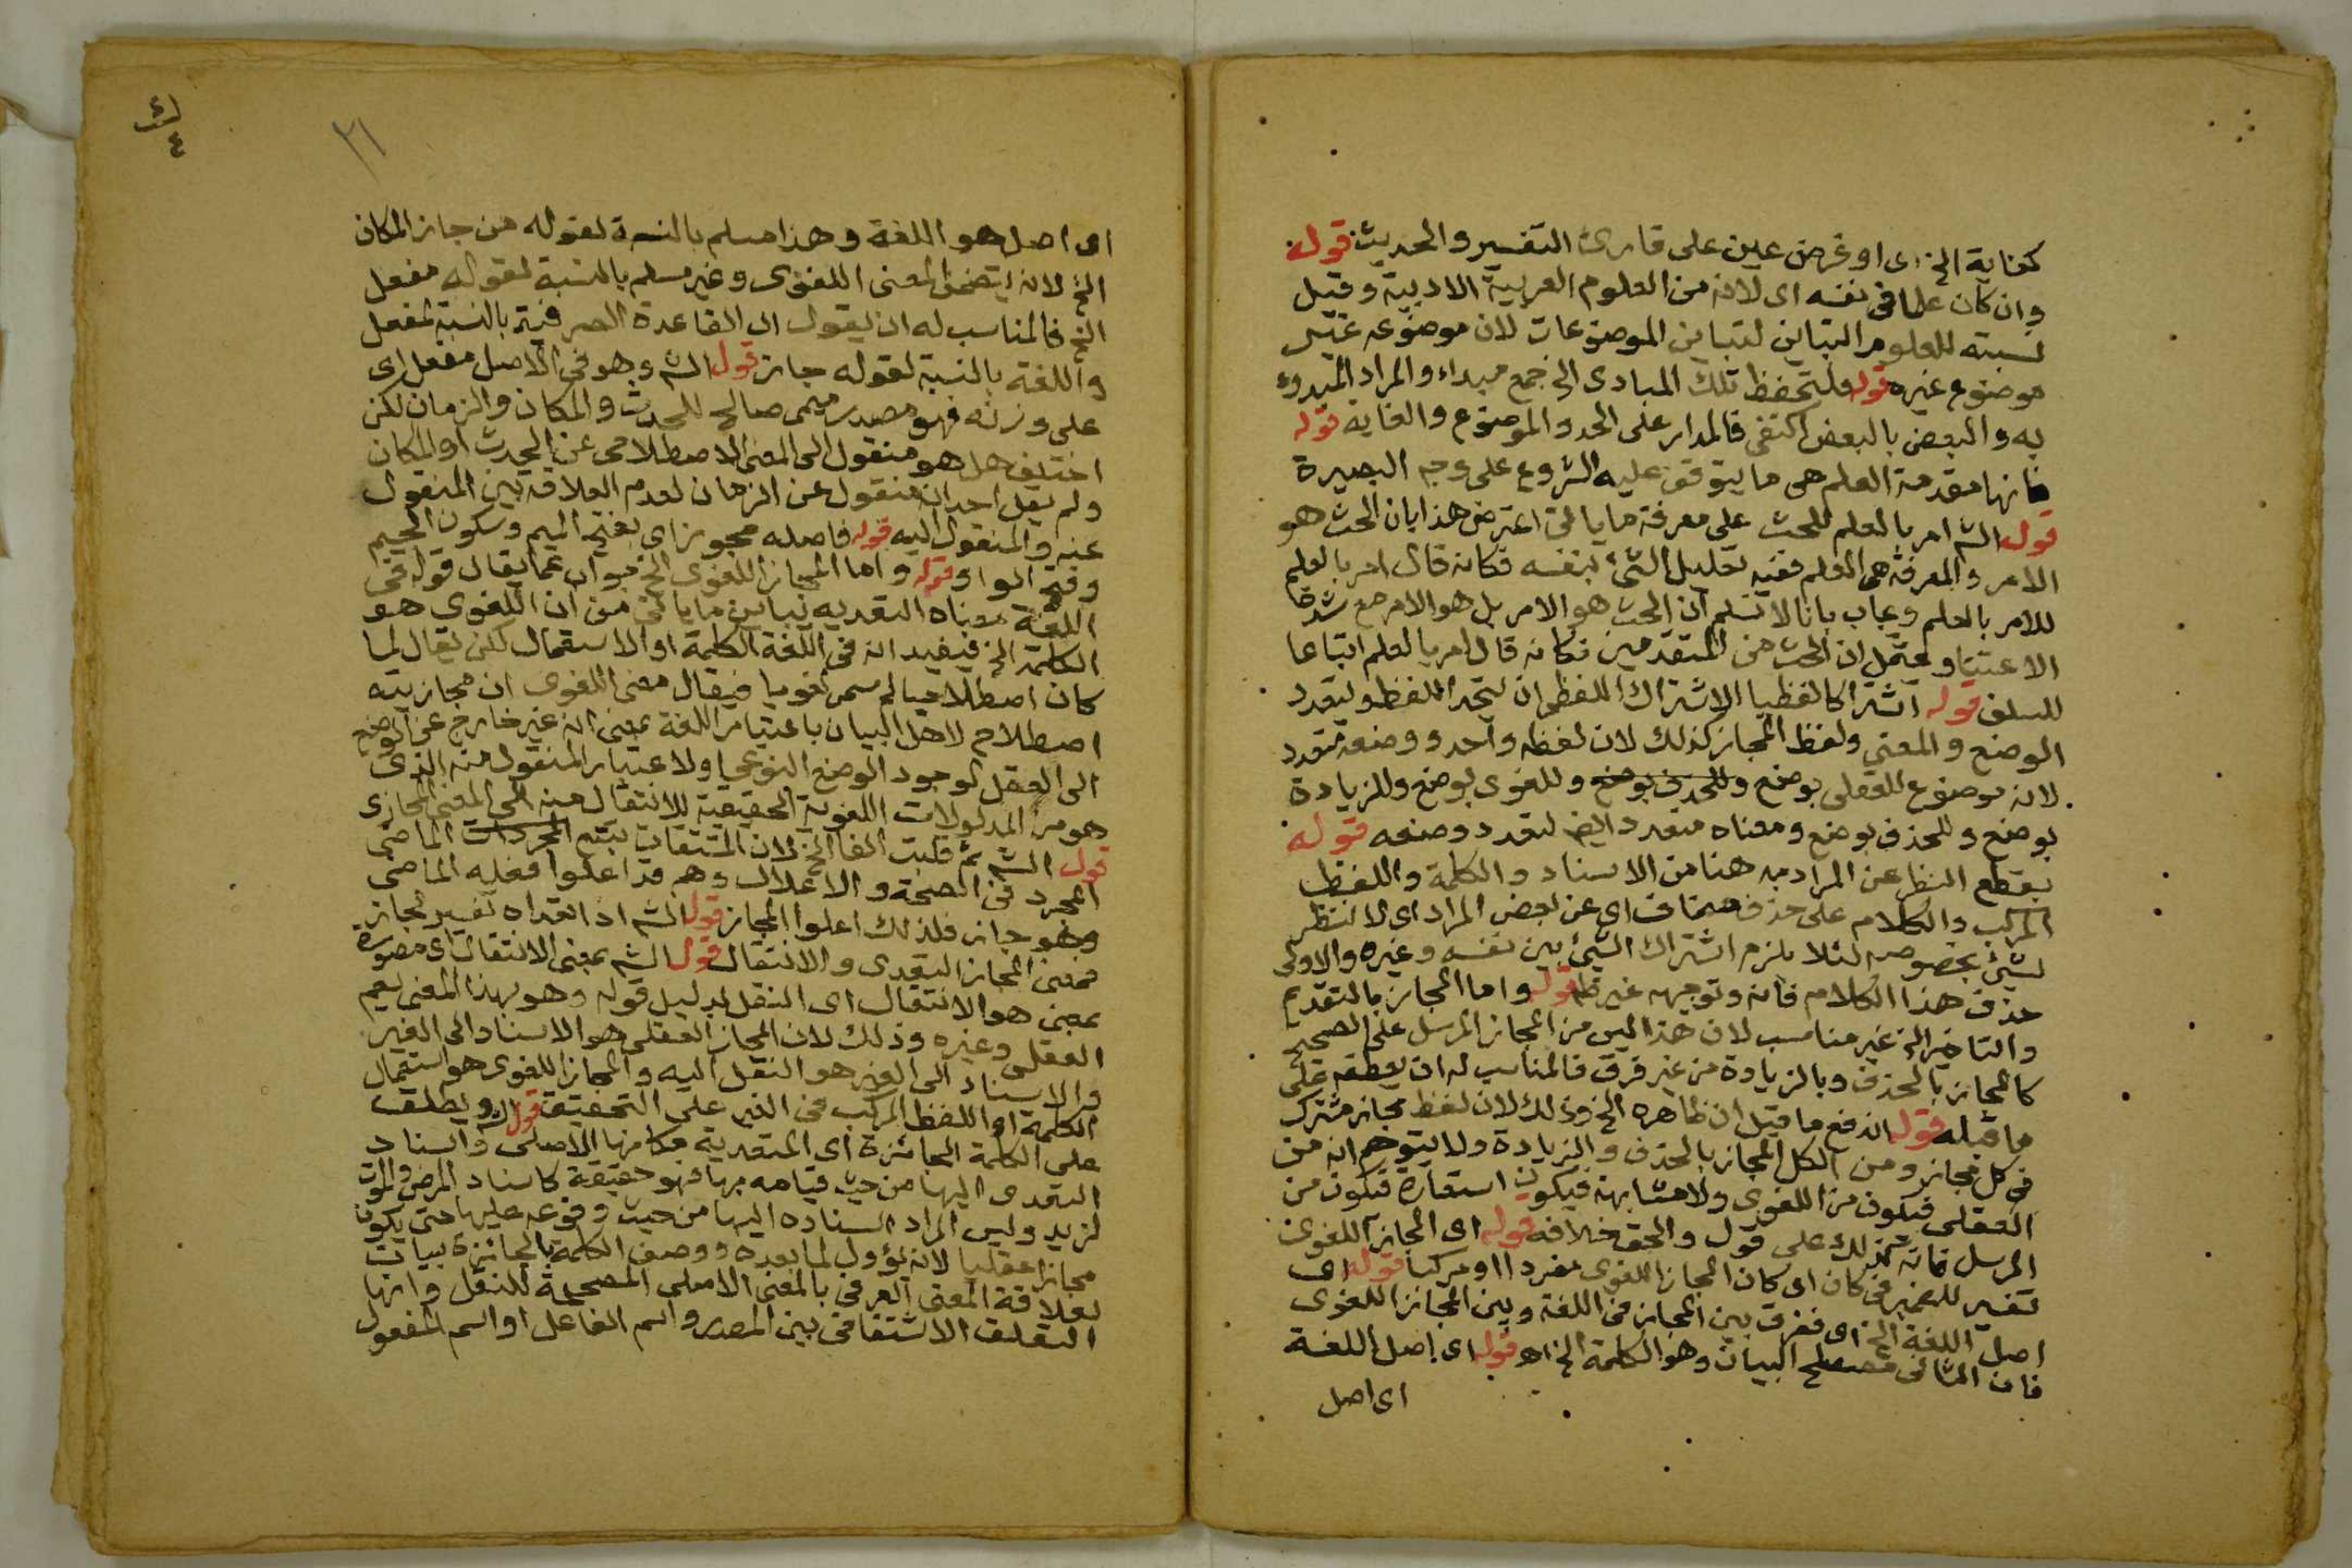 كفاية الخ اى او فرض عين على قارئ التفسير والحديث قوله
وان كان علما فى نفسه اى لانه من العلوم العربية الادبية وقيل
نسبته للعلوم التباين لتباين الموضوعات لان موضوعه غير
موضوع غيره قوله فلتحفظ تلك المبادى الخ جمع مبداء والمراد المبدوء
به والبعض بالبعض اكتفى فالمدار على الحد والموضوع والغاية قوله
فانها مقدمة العلم هى ما يتوقف عليه الشروع على وجه البصيرة
قول الش امر بالعلم للحث على معرفة ما ياتى اعترض هذا بان الحث هو
الامر والمعرفة هى العلم ففيه تعليل الشئ بنفسه فكانه قال امر بالعلم
للامر بالعلم وجاب بانا لا نسلم ان الحث هو الامر بل هو الامر مع شدة
الاعتنا ويحتمل ان الحث من المتقدمين فكانه قال امر بالعلم اتباعا
للسلف قوله اشتراكا لفظيا الاشتراك اللفظى ان يتحد اللفظ ويتعدد
الوضع والمعنى ولفظ المجاز كذلك لان لفظه واحد ووضعه متعدد
لانه موضوع للعقلى بوضع وللحذف بوضع وللغوى بوضع وللزيادة
بوضع وللحذف بوضع ومعناه متعدد ايضا لتعدد وضعه قوله
بقطع النظر عن المراد به هنا من الاسناد والكلمة واللفظ
المركب والكلام على حذف مضاف اى عن بعض المراد اى لا ننظر
لشئ بخصوصه لئلا يلزم اشتراك الشئ بين نفسه وغيره والاولى
حذف هذا الكلام فانه وتوجيهه غير ظ قوله واما المجاز بالتقديم
والتاخير الخ غير مناسب لان هذا ليس من المجاز المرسل على الصحيح
كالمجاز بالحذف وبالزيادة من غير فرق فالمناسب له ان يعطفه على
ما قبله قوله اندفع ما قيل ان ظاهره الخ وذلك لان لفظ مجاز مشترك
فى كل مجاز ومن الكل المجاز بالحذف والزيادة ولا يتوهم انه من
العقلى فيكون من اللغوى ولا مشابهة فيكون استعارة فيكون من
المرسل فانه كذلك على قول والحق خلافه قوله اى المجاز اللغوى
تفسير للضمير فى كان اى كان المجاز اللغوى مفردا او مركبا قوله اى
اصل اللغة الخ اى ففرق بين المجاز فى اللغة وبين المجاز اللغوى
فان الثانى مصطلح البيان وهو الكلمة الخ اه قوله اى اصل اللغة
اى اصل
٢١
٤
اى اصل هو اللغة وهذا مسلم بالنسبة لقوله من جاز المكان
الخ لانه يتضمن المعنى اللغوى وغير مسلم بالنسبة لقوله مفعل
الخ فالمناسب له ان يقول اى القاعدة الصرفية بالنسبة لمفعل
واللغة بالنسبة لقوله جاز قول الش وهو فى الاصل مفعل اى
على وزنه فهو مصدر ميمى صالح للحدث والمكان والزمان لكن
اختلف هل هو منقول الى المعنى الاصطلاحى عن الحدث او المكان
ولم يقل احد انه منقول عن الزمان لعدم العلاقة بين المنقول
عنه والمنقول اليه قوله فاصله مجوز اى بفتح الميم وسكون الجيم
وفتح الواو قوله واما المجاز اللغوى الخ جواب عما يقال قوله فى
اللغة معناه التعدية يباين ما ياتى من ان اللغوى هو
الكلمة الخ فيفيد انه فى اللغة الكلمة او الاستعمال لكن يقال لما
كان اصطلاحيا لم سمى لغويا فيقال معنى اللغوى ان مجازيته
اصطلاح لاهل البيان باعتبار اللغة بمعنى انه غير خارج عن الوضع
الى العقل لوجود الوضع النوعى او لاعتبار المنقول منه الذى
هو من المدلولات اللغوية الحقيقية للانتقال منه الى المعنى المجازى
قول الش ثم قلبت الفا الخ لان المشتقات تتبع المجردات الماضى
المجرد فى الصحة والاعلال وهم قد اعلوا فعله الماضى
وهو جاز فلذلك اعلوا المجاز قول الش اذا تعداه تفسير لجاز
فمعنى المجاز التعدى والانتقال قول الش بمعنى الانتقال اى مصورة
بمعنى هو الانتقال اى النقل بدليل قوله وهو بهذا المعنى يعم
العقلى وغيره وذلك لان المجاز العقلى هو الاسناد الى الغير
والاسناد الى الغير هو النقل اليه والمجاز اللغوى هو استعمال
الكلمة او اللفظ المركب فى الغير على التحقيق قول الش ويطلق
على الكلمة الجائزة اى المتعدية مكانها الاصلى واسناد
التعدى اليها من حيث قيامه بها فهو حقيقة كاسناد المرض والموت
لزيد وليس المراد اسناده اليها من حيث وقوعه عليها حتى يكون
مجازا عقليا لانه يؤول لما بعده ووصف الكلمة بالجائزة بيان
لعلاقة المعنى العرفى بالمعنى الاصلى المصححة للنقل وانها
التعلق الاشتقاقى بين المصدر واسم الفاعل او اسم المفعول